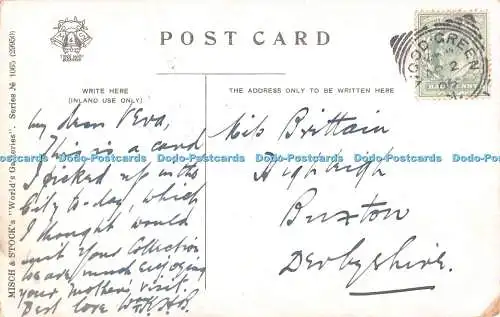 POST CARD
WRITE HERE
(INLAND USE ONLY)
THE ADDRESS ONLY TO BE WRITTEN HERE
MISCH & STOCK'S "World's Galleries". Series № 1065
GREEN
2
HALFPENNY
my dear Vera,
This is a card
I picked up in the
City to-day, which
I thought would
suit your Collection
We are much enjoying
your mother's visit.
Best love
Miss Brittain
High Leigh
Buxton
Derbyshire.
Dodo-Postcards Dodo-Postcards Dodo-Postcards Dodo-Postcards